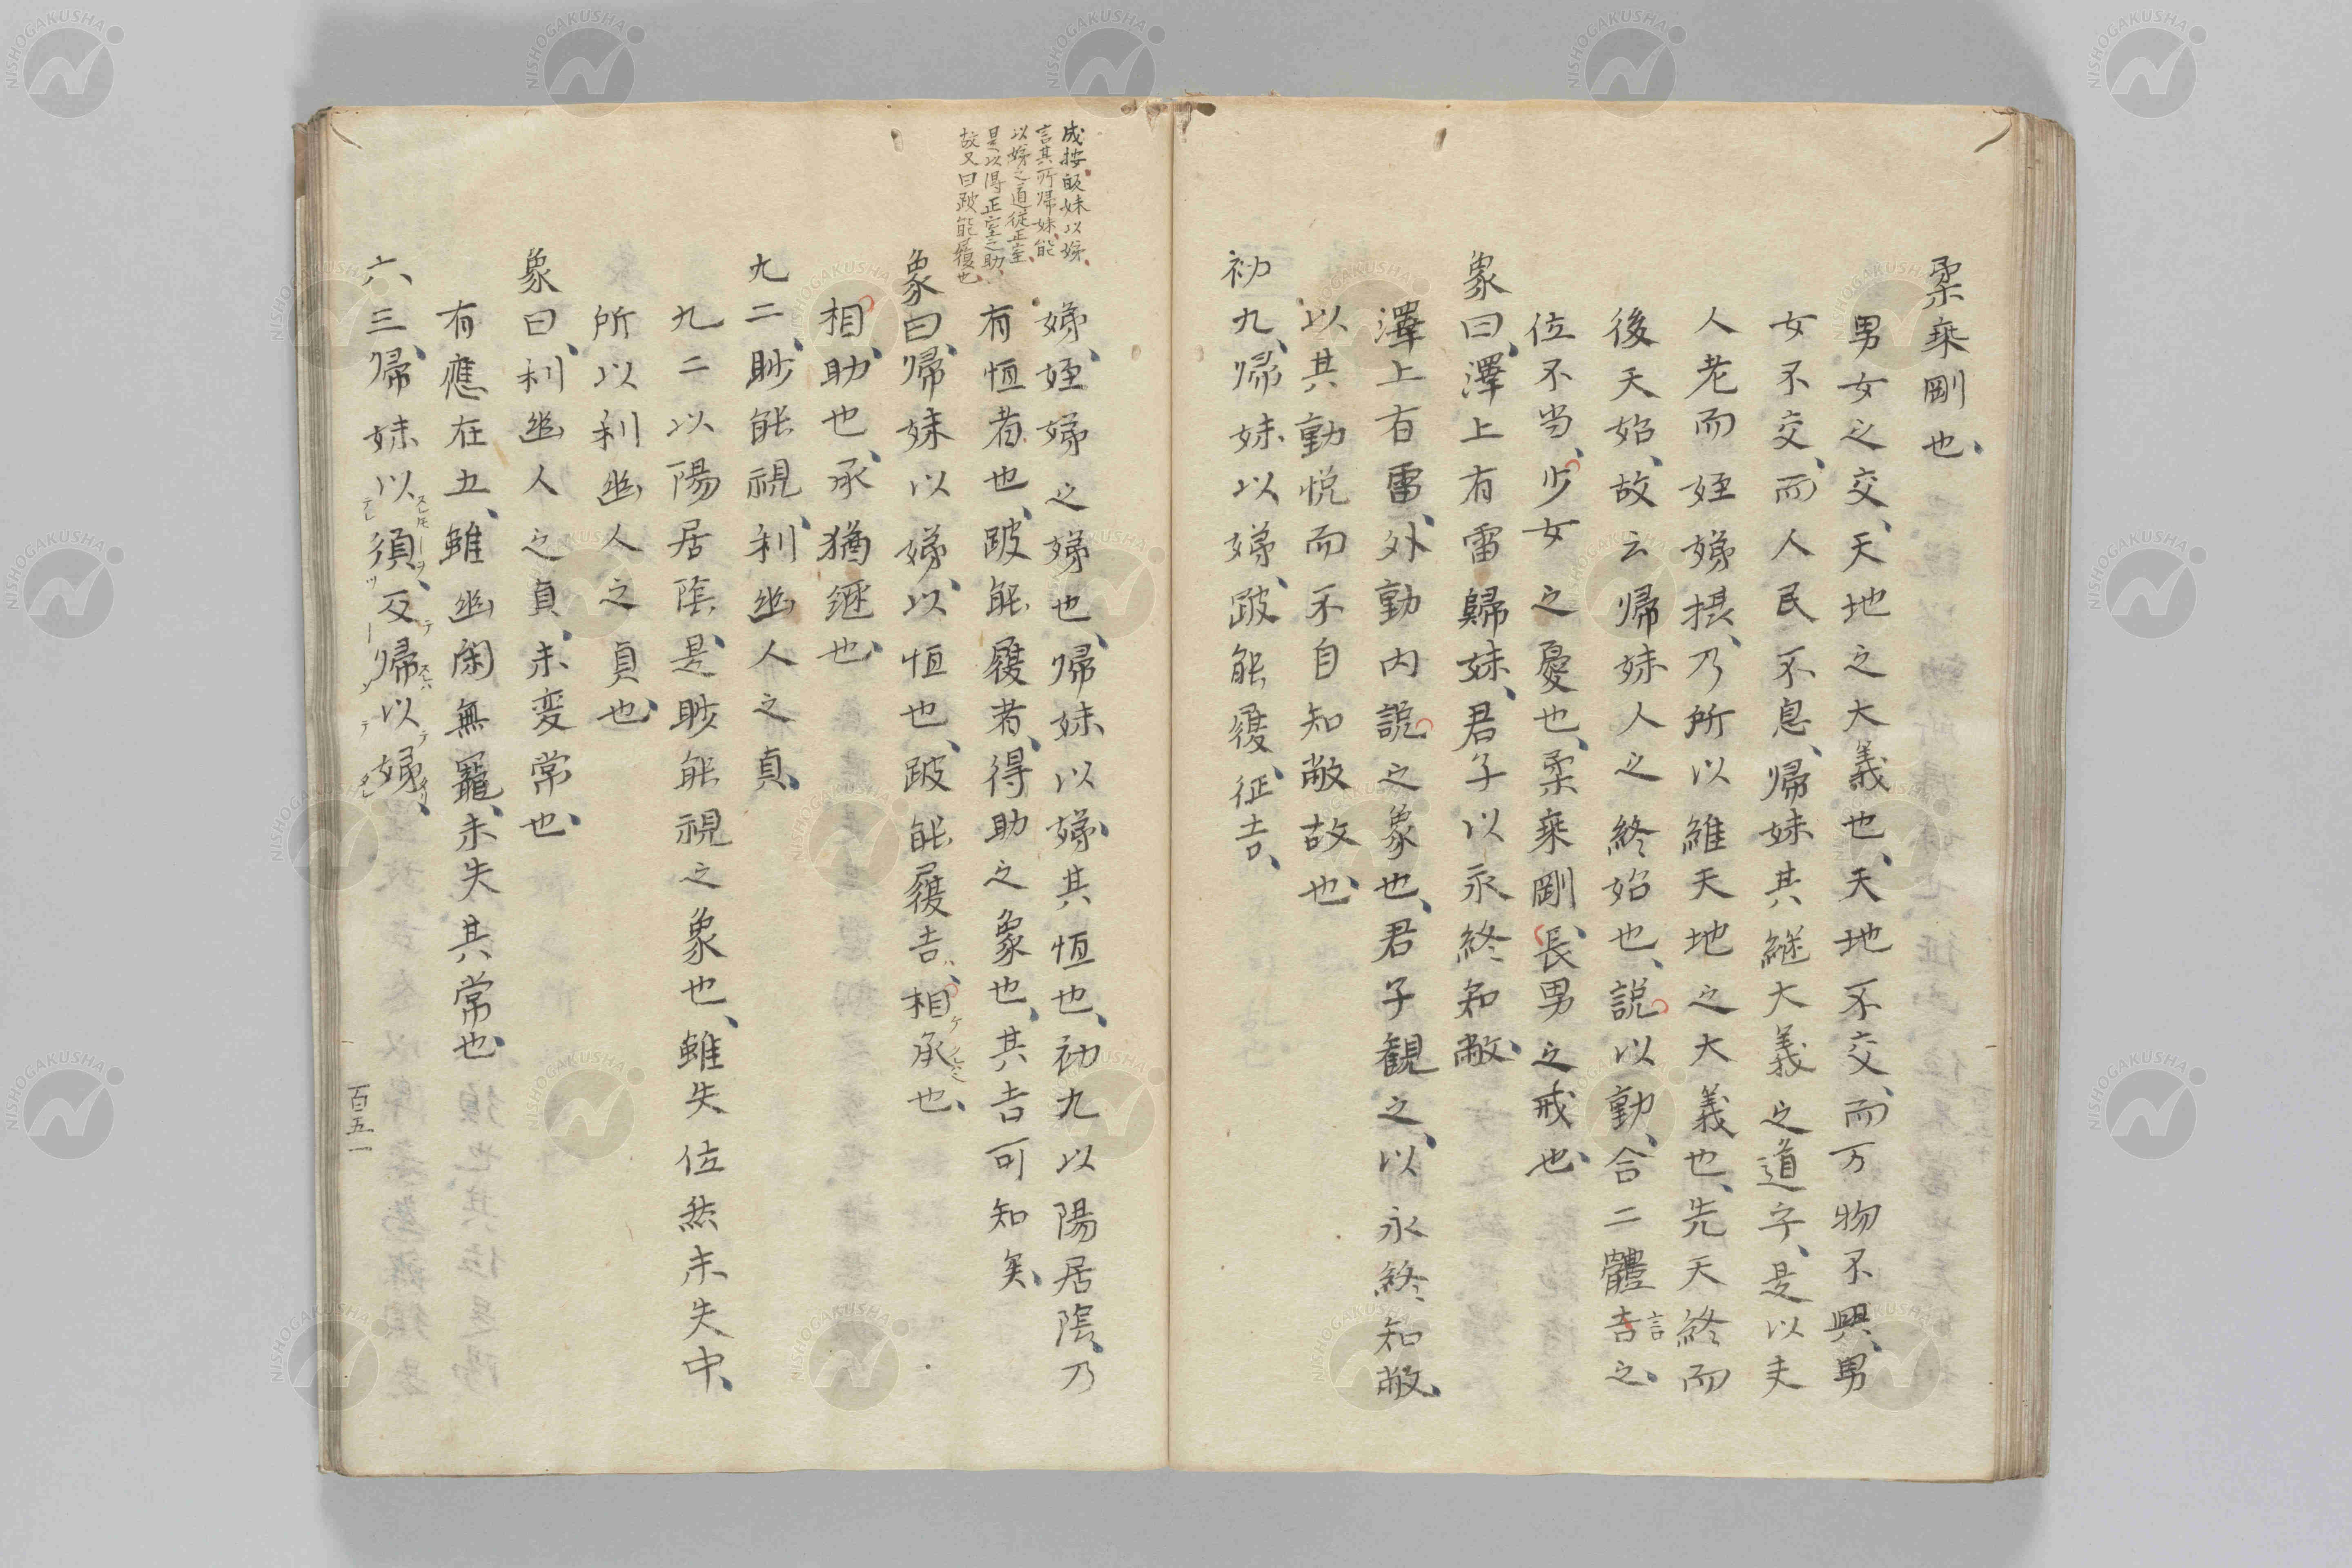 柔乗剛也、
男女之交、天地之大義也、天地不交、而万物不興、男
女不交、而人民不息、帰妹其継大義之道字、是以夫
人老而姪娣摂、乃所以維天地之大義也、先天終而
後天始、故云帰妹人之終始也、説以動、合二體吉之、
言
位不当、少女之憂也、柔乗剛、長男之戒也、
象曰、澤上有雷歸妹、君子以永終知敝、
澤上有雷、外動内説之象也、君子観之、以永終知敝、
以其動悦而不自知敝故也、
初九、帰妹以娣、跛能履、征吉、
成按、皈妹以娣、
言其所帰妹、能
以娣之道従正室、
是以得正室之助、
故又曰跛能履也、
娣、姪娣之娣也、帰妹以娣、其恒也、初九以陽居陰、乃
有恒者也、跛能履者、得助之象也、其吉可知矣、
象曰、帰妹以娣、以恒也、跛能履吉、相承也、
相助也、承猶継也、
九二、眇能視、利幽人之貞、
九二以陽居陰、是眇能視之象也、雖失位然未失中、
所以利幽人之貞也、
象曰、利幽人之貞、未変常也、
有應在五、雖幽閑無寵、未失其常也、
六、三、帰妹以須、反帰以娣、
百五一